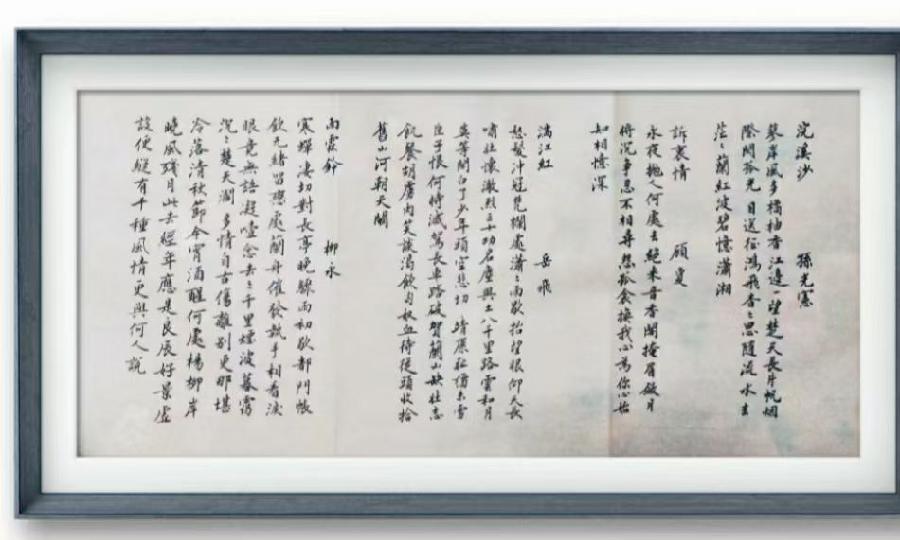 浣溪沙 孫光憲
蓼岸風多橘柚香江邊一望楚天長片帆烟
際閃孤光 目送征鴻飛杳〻思隨流水去
茫〻蘭紅波碧憶瀟湘
訴衷情 顧夐
永夜拋人何處去絕來音香閣掩眉斂月
將沉爭忍不相尋怨孤衾換我心為你心始
知相憶深
滿江紅 岳飛
怒髮沖冠凭欄處瀟〻雨歇抬望眼仰天長
嘯壯懷激烈三十功名塵與土八千里路雲和月
莫等閒白了少年頭空悲切 靖康恥猶未雪
臣子恨何時滅駕長車踏破賀蘭山缺壯志
飢餐胡虜肉笑談渴飲匈奴血待從頭收拾
舊山河朝天闕
雨霖鈴 柳永
寒蟬淒切對長亭晚驟雨初歇都門帳
飲无緒留戀處蘭舟催發執手相看淚
眼竟無語凝噎念去去千里煙波暮靄
沉〻楚天闊多情自古傷離別更那堪
冷落清秋節今宵酒醒何處楊柳岸
曉風殘月此去經年應是良辰好景虛
設便縱有千種風情更與何人說